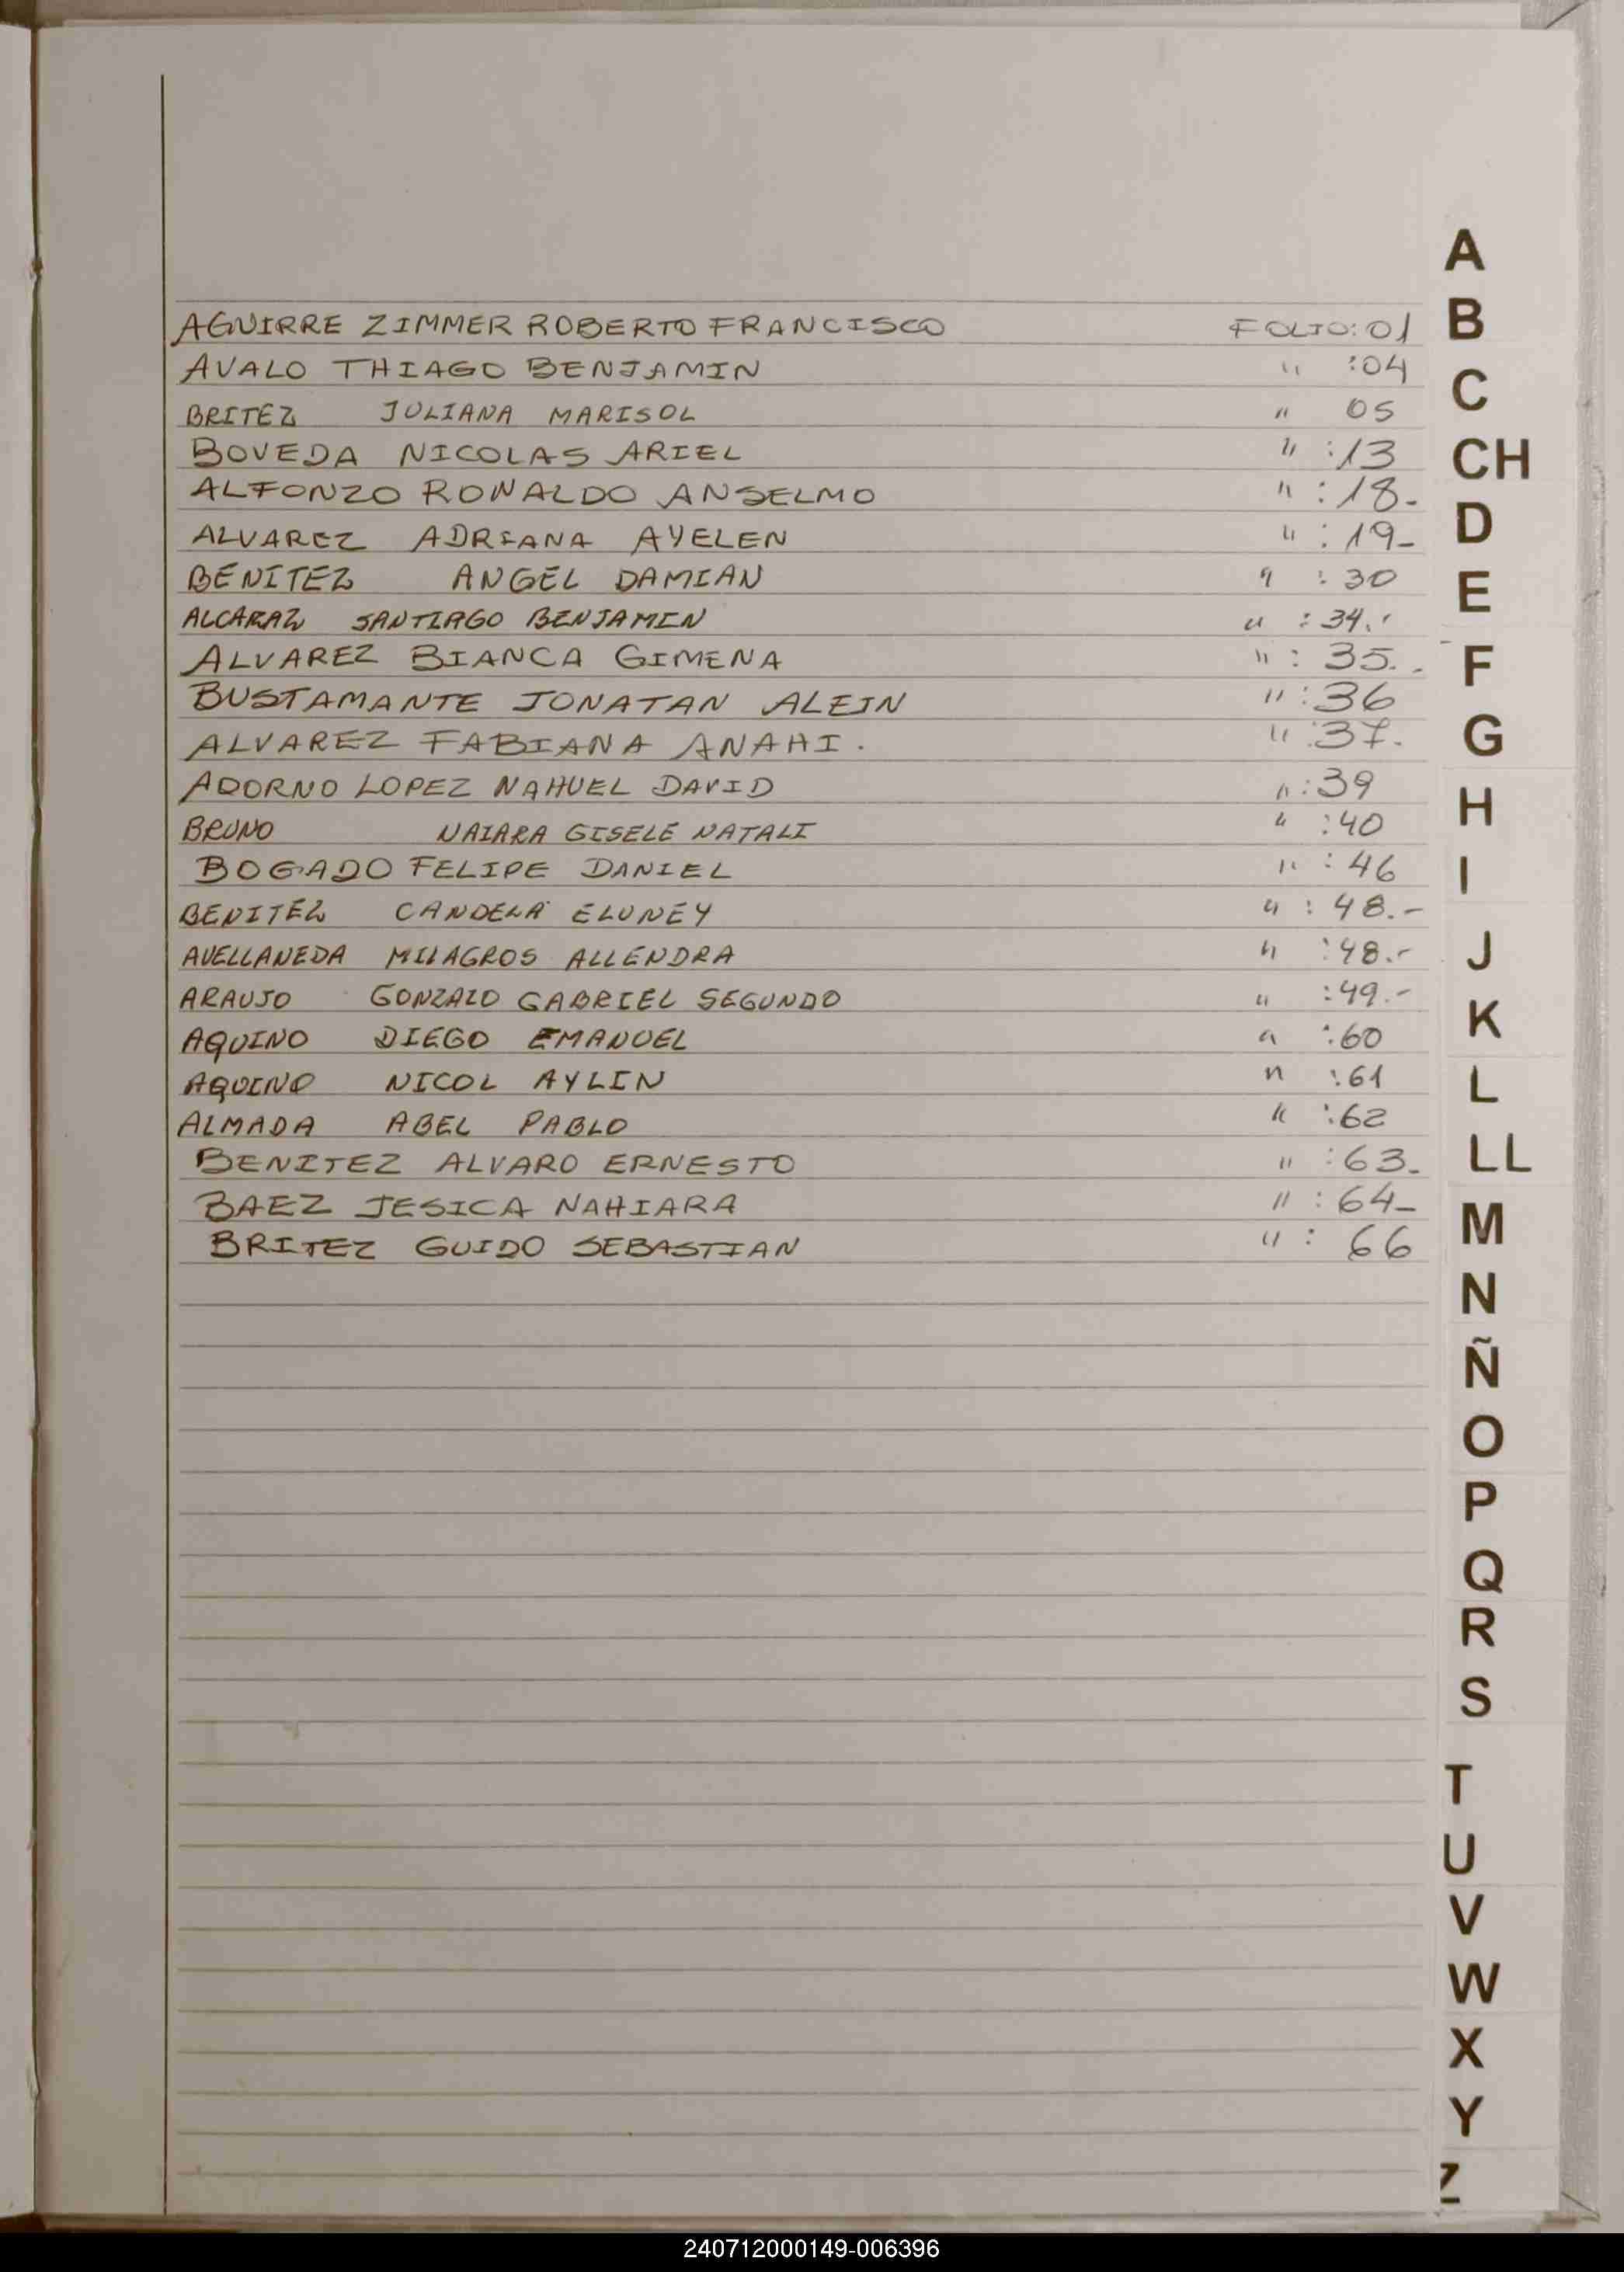 AGUIRRE ZIMMER ROBERTO FRANCISCO FOLIO: 01
AVALO THIAGO BENJAMIN " :04
BRITEZ JULIANA MARISOL " 05
BOVEDA NICOLAS ARIEL " :13
ALFONZO RONALDO ANSELMO " : 18.
ALVAREZ ADRIANA AYELEN " : 19-
BENITEZ ANGEL DAMIAN " : 30
ALCARAZ SANTIAGO BENJAMIN " : 34.
ALVAREZ BIANCA GIMENA " : 35.
BUSTAMANTE JONATAN ALEIN " : 36
ALVAREZ FABIANA ANAHI. " : 37.
ADORNO LOPEZ NAHUEL DAVID " : 39
BRUNO NAIARA GISELE NATALI " :40
BOGADO FELIPE DANIEL " : 46
BENITEZ CANDELA ELUNEY " : 48.-
AVELLANEDA MILAGROS ALLENDRA " :48.-
ARAUJO GONZALO GABRIEL SEGUNDO " :49.-
AQUINO DIEGO EMANUEL " :60
AQUINO NICOL AYLIN " :61
ALMADA ABEL PABLO " :62
BENITEZ ALVARO ERNESTO " :63.
BAEZ JESICA NAHIARA " : 64-
BRITEZ GUIDO SEBASTIAN " : 66
A
B
C
CH
D
E
F
G
H
I
J
K
L
LL
M
N
Ñ
O
P
Q
R
S
T
U
V
W
X
Y
Z
240712000149-006396